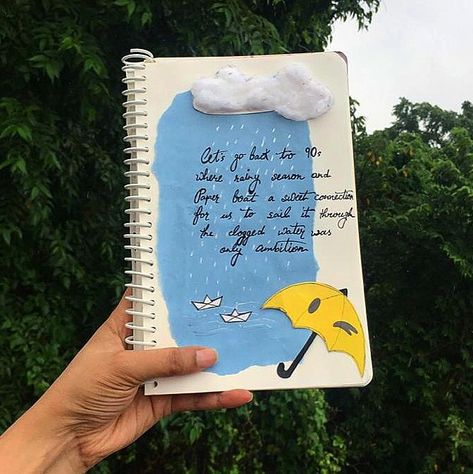 Let's go back to 90s
where rainy season and
Paper boat a sweet connection
for us to sail it through
the clogged water was
only ambition